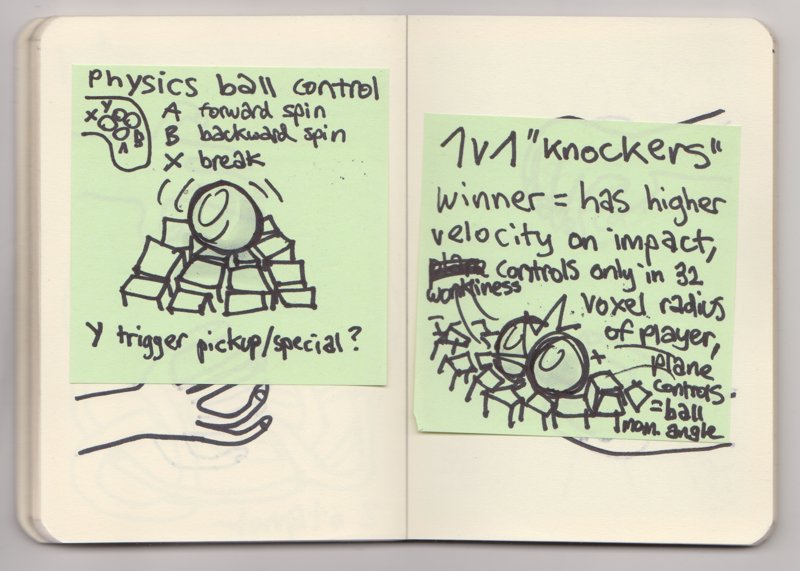 Physics ball control
Y
X B
A
A forward spin
B backward spin
X break
Y trigger pickup/special?
1v1 "Knockers"
winner = has higher
velocity on impact,
controls only in 32
wonkiness
voxel radius
of player,
plane
controls
= ball
mom. angle